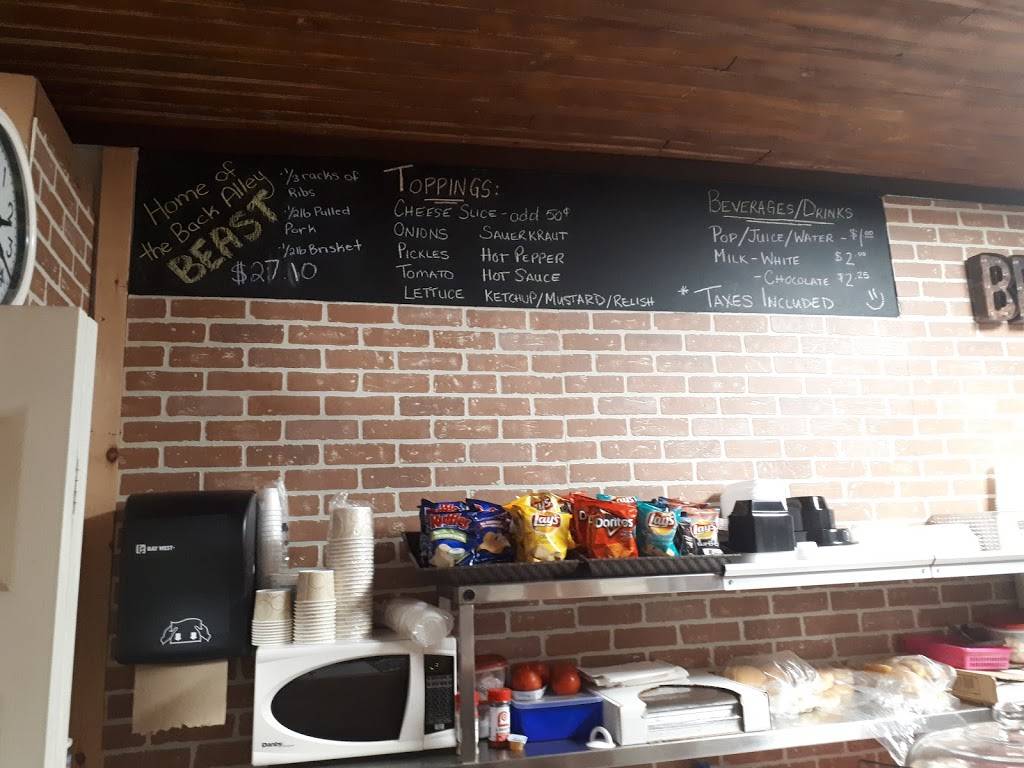 Home of
the Back Alley
BEAST
$27.10
· 1/3 racks of
Ribs
· 1/2lb Pulled
Pork
· 1/2lb Brisket
TOPPINGS:
CHEESE SLICE - add 50¢
ONIONS SAUERKRAUT
PICKLES HOT PEPPER
TOMATO HOT SAUCE
LETTUCE KETCHUP/MUSTARD/RELISH
BEVERAGES/DRINKS
POP/JUICE/WATER - $1.00
MILK - WHITE $2.00
- CHOCOLATE $2.25
* TAXES INCLUDED
BAY WEST
Ruffles
Lay's
Doritos
Lay's
Lay's
Danby